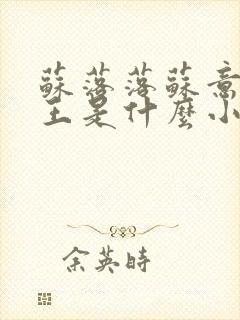 蘇落落蘇意
王是什麼小
余英時